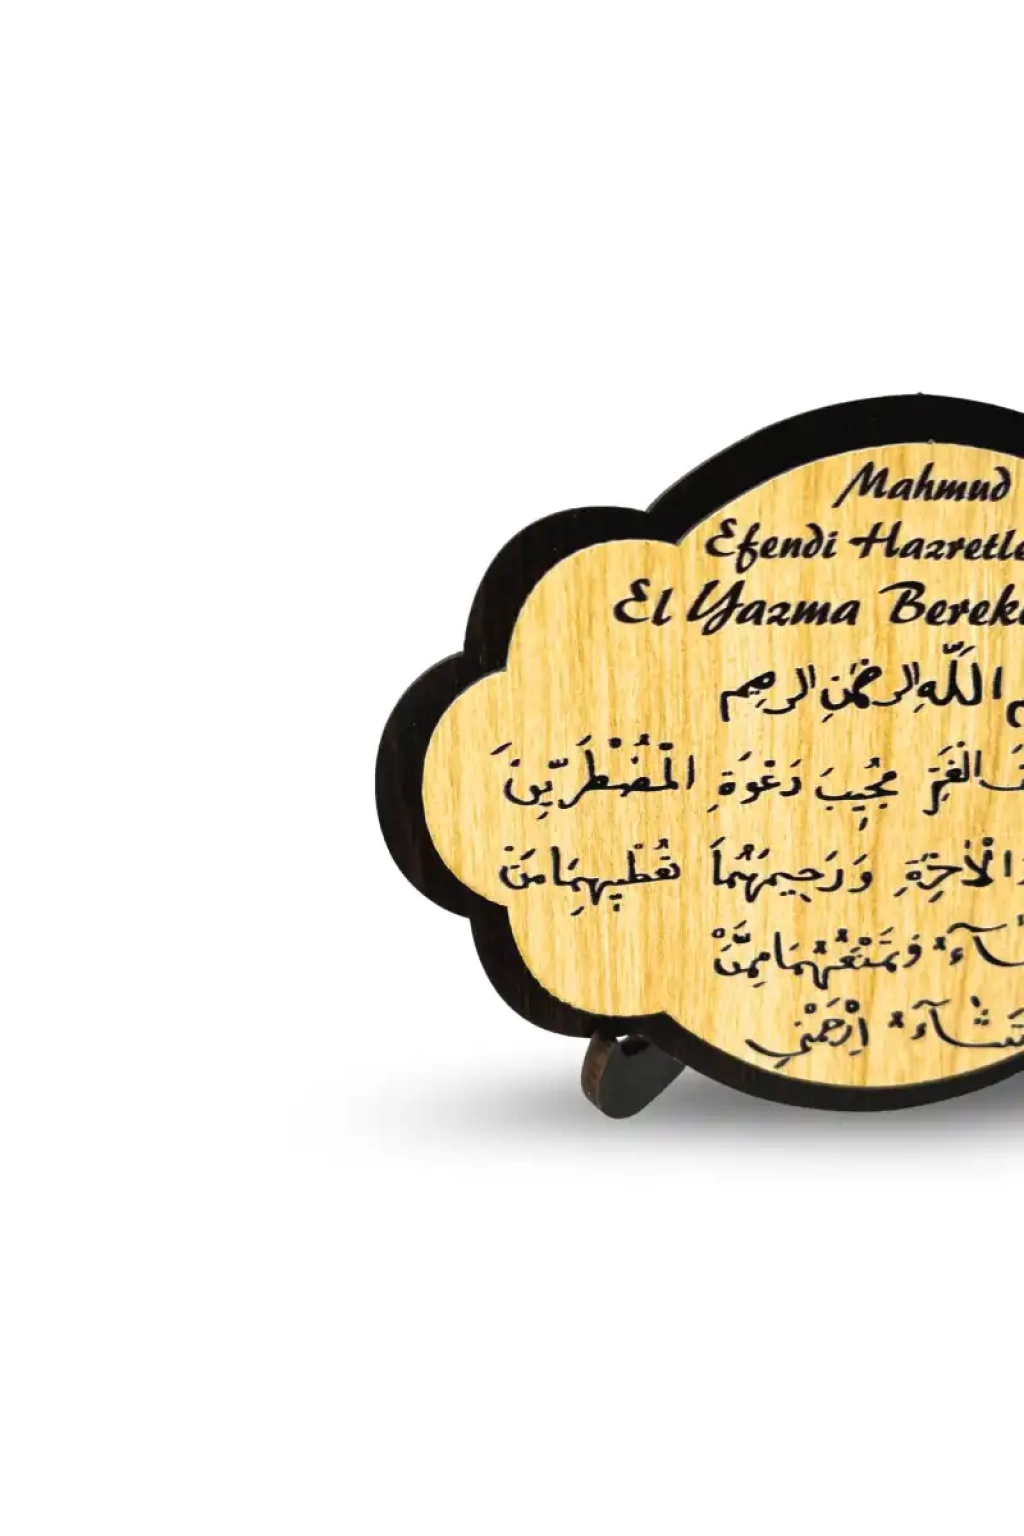 Mahmud
Efendi Hazretle
El Yazma Bereke
اللّٰهِ الرحْمٰنِ الرحيم
الْغَمِّ مُجِيبَ دَعْوَةِ الْمُضْطَرِّينَ
الْاٰخِرَةِ وَرَحِيمَهُمَا تُعْطِيهِمَا مَنْ
وَتَمْنَعُهُمَا مِمَّنْ
تَشَآءُ اِرْحَمْنِي